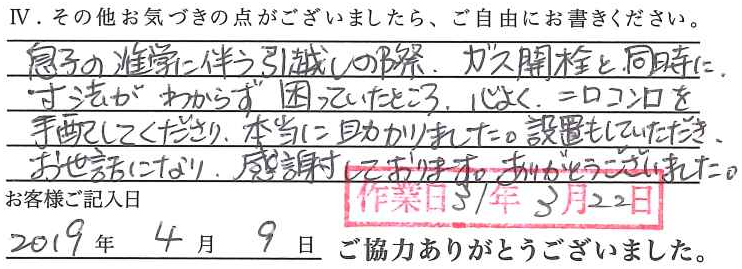 Ⅳ．その他お気づきの点がございましたら、ご自由にお書きください。
息子の進学に伴う引越しの際、ガス開栓と同時に、
寸法がわからず困っていたところ、心よく、二口コンロを
手配してくださり、本当に助かりました。設置もしていただき、
お世話になり、感謝しております。ありがとうございました。
お客様ご記入日
作業日31年3月22日
2019年 4月 9日 ご協力ありがとうございました。